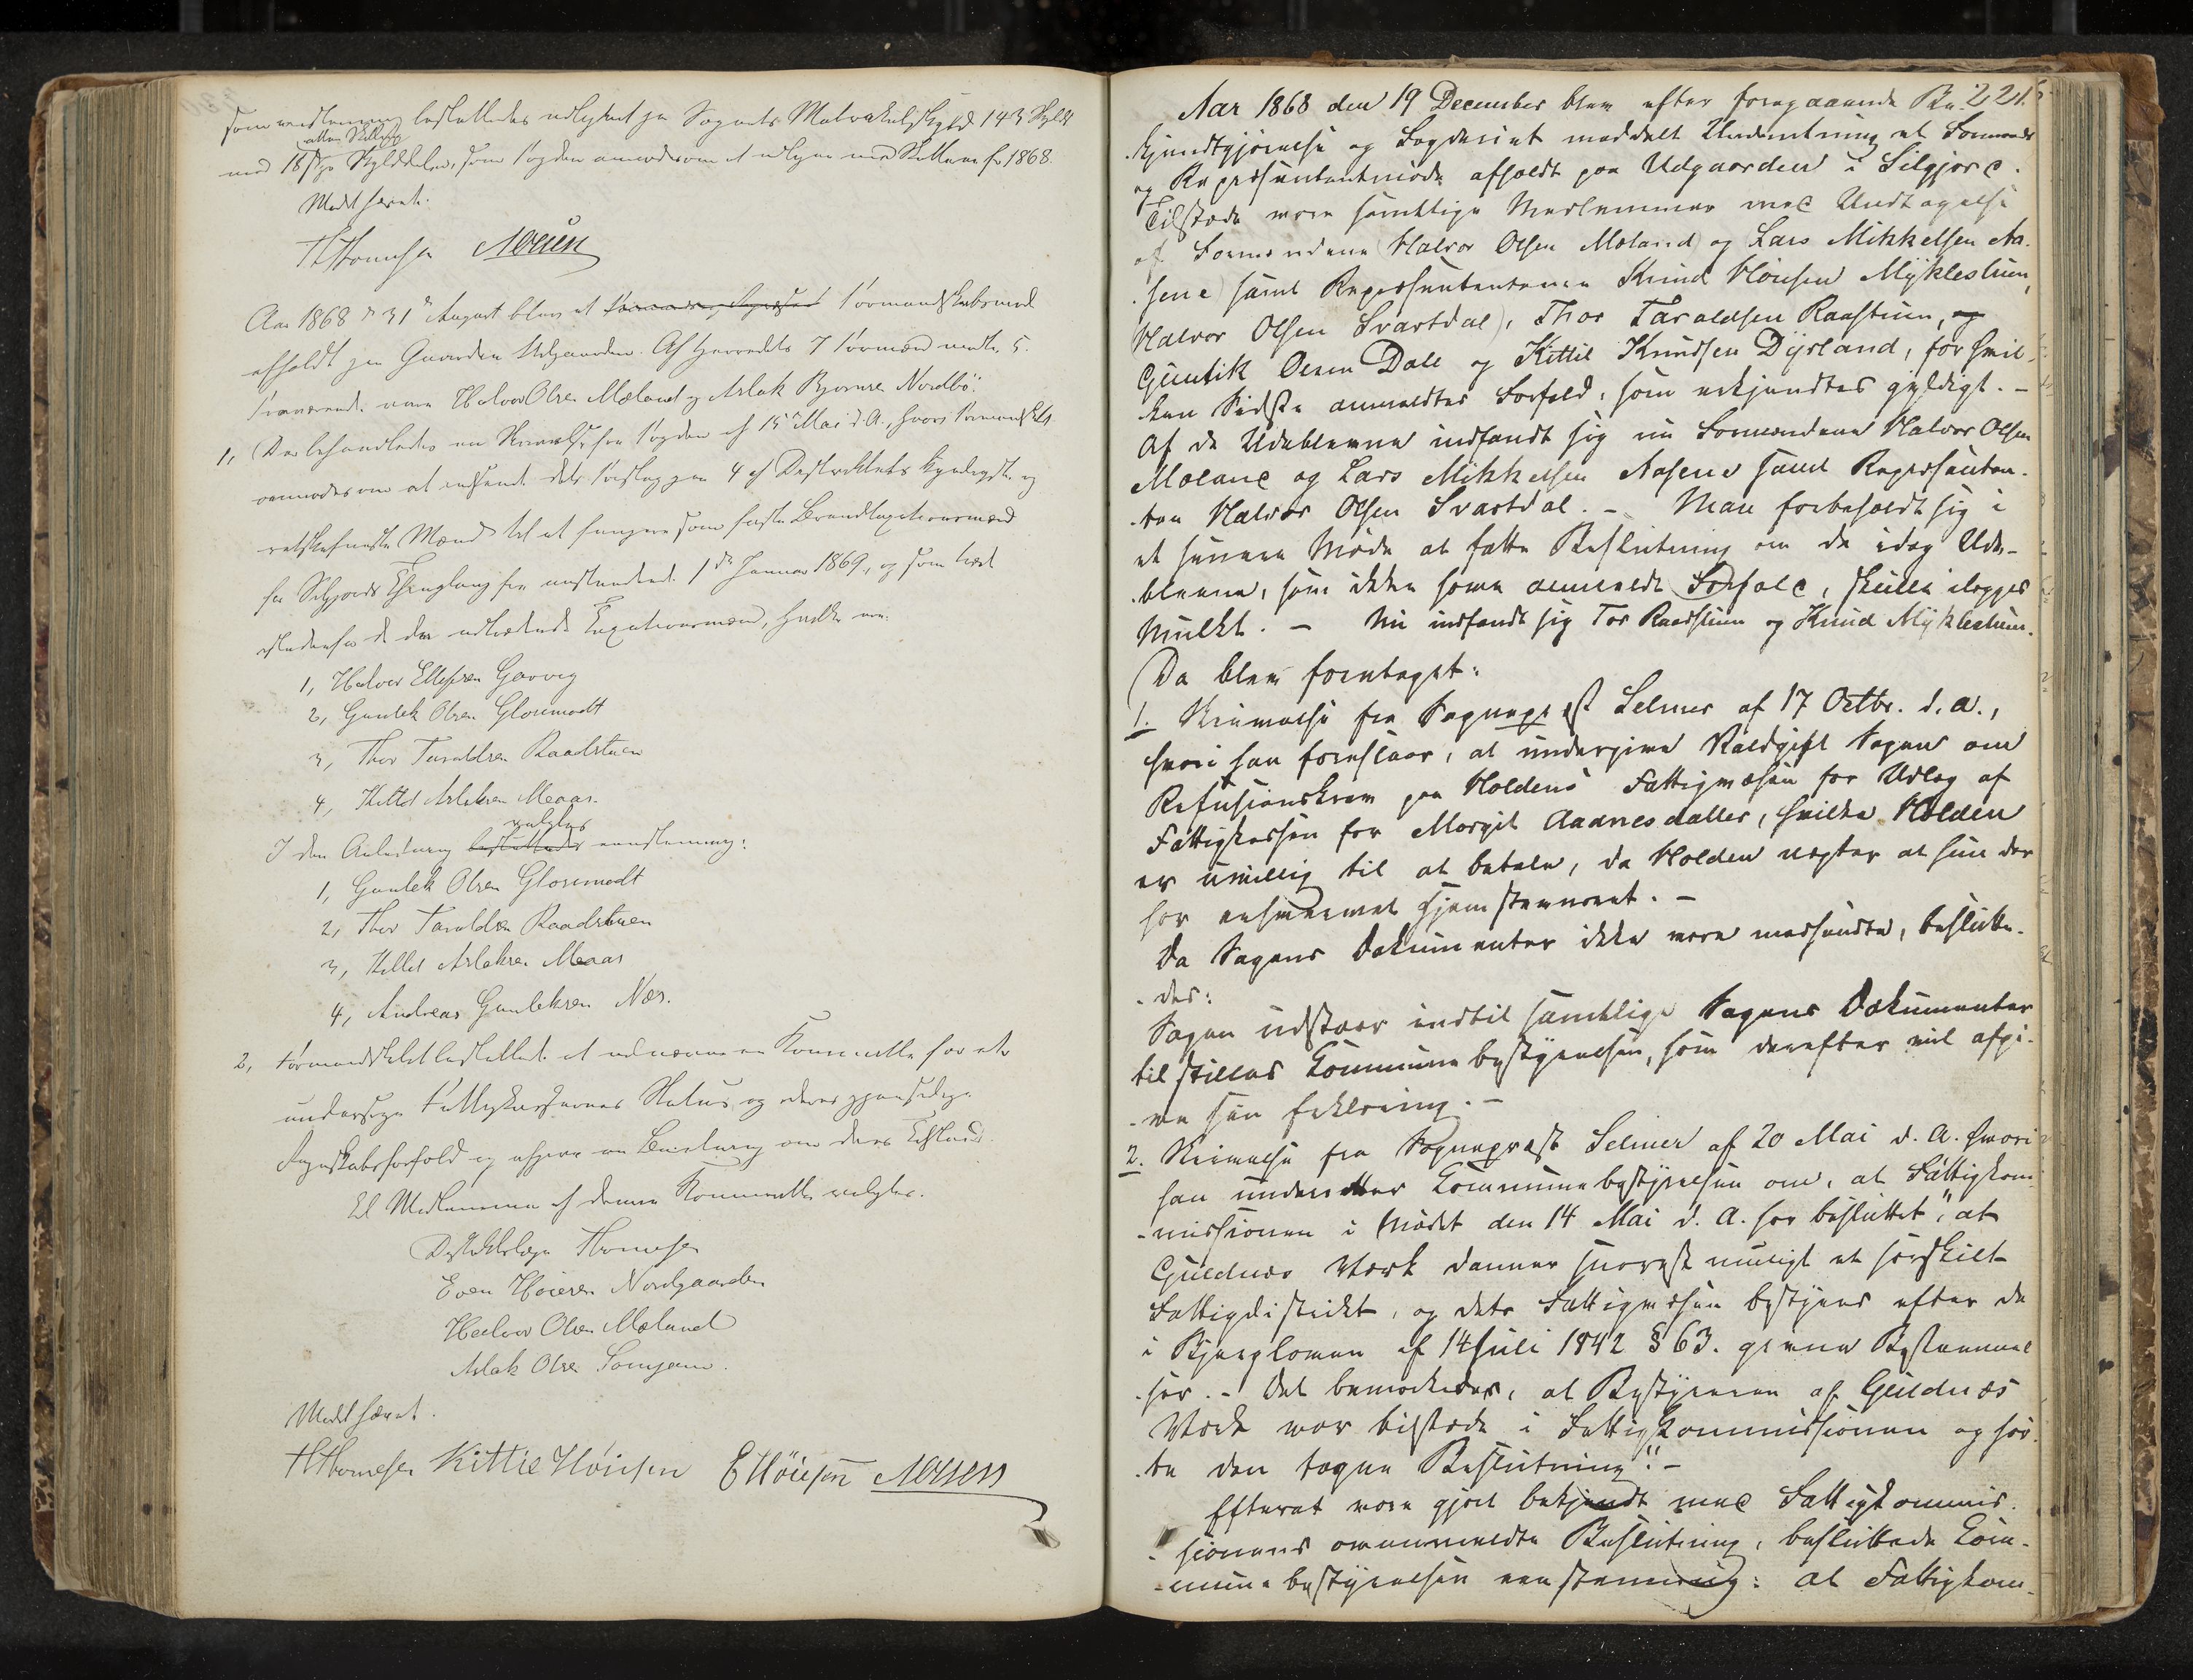 som eenstemmig besluttedes udlignet paa Sognets Matrikulskyld 143 Skyld
atten Skilling
med 18 s pr Skylddaler, som Fogden anmodes om at udligne med Skatterne for 1868.
Mødet hævet.
HThomesen
Aar 1868 d 31te August blev et Formandskabsmøde
afholdt paa Gaarden Utgaarden. Af Herredets 7 Formænd mødte 5.
Fraværende vare Halvor Olsen Mæland og Aslak Bjørnsen Nordbø.
1, Der behandledes en Skrivelse fra Fogden af 15de Mai d. A., hvori Formandskabet
anmodes om at indsende dets Forslag paa 4 af Distriktets kyndigste og
retskafneste Mænd til at fungere som faste Brandtaxationsmænd
for Seljords Thinglaug fra anstundende 1ste Januar 1869, og som træde
istedenfor de da udtrædende Taxationsmænd, hvilke ere.
1, Halvor Ellefsen Garvig
2, Gunlek Olsen Glosemodt
3, Thor Taraldsen Raadstuen
4, Kittel Aslaksen Meaas.
valgtes
I den Anledning besluttedes eenstemmig:
1, Gunlek Olsen Glosemodt
2, Thor Taraldsen Raadstuen
3, Kittel Aslaksen Meaas
4, Andreas Gunleksen Næs.
2, Formandskabet besluttede at udnævne en Kommitte for at
undersøge Fattigkassernes Status og deres gjensidige
Regnskabsforhold og afgive en Beretning om deres Tilstand.
Til Medlemmer af denne Kommitte valgtes.
Distriktslæge Thomesen
Even Høiesen Nordgaarden
Halvor Olsen Mæland
Aslak Olsen
Mødet hævet.
HThomesen Kittil Høiesen EHøiesen
221
Aar 1868 den 19 December blev efter foregaaende Be-
kjendtgjørelse og Fogderiet meddelt Underretning et Formands
og Repræsentantmøde afholdt paa Utgaarden i Siljord.
Tilstede vare samtlige Medlemmer med Undtagelse
af Formændene (Halvor Olsen Mæland) og Lars Mikkelsen Aa-
sene) samt Repræsentanterne Knud Høiesen Myklestuen,
Halvor Olsen Svartdal), Thor Taraldsen Raastuen, og
Gunlik Olsen Dale og Kittil Knudsen Dyrland, for hvil-
ken Sidste anmeldtes Forfald, som erkjendtes gyldigt. –
Af de Udeblevne indfandt sig nu Formændene Halvor Olsen
Mæland og Lars Mikkelsen Aasene samt Repræsentan-
ten Halvor Olsen Svartdal. – Man forbeholdt sig i
et senere Møde at fatte Beslutning om de idag Ude-
blevne, som ikke have anmeldt Forfald, skulle ilægges
Mulkt. – Nu indfandt sig Tor Raastuen og Knud Myklestuen.
Da blev foretaget:
1. Skrivelse fra Sognepræst Selmer af 17 Octbr. d. A.,
hvori han foreslaar, at undergive Voldgift Sagen om
Refusionskrav paa Holdens Fattigvæsen for Udlæg af
Fattigkassen for Margit Aadnesdatter, hvilke Holden
er uvillig til at betale, da Holden negter at hun der
har erhvervet Hjemstavnsret. –
Da Sagens Dokumenter ikke vare medsendte, beslutte-
des:
Sagen udstaar indtil samtlige Sagens Dokumenter
tilstilles Kommunebestyrelsen, som derefter vil afgi-
ve sin Erklæring. –
2. Skrivelse fra Sognepræst Selmer af 20 Mai d. A. hvori
han underretter Kommunebestyrelsen om, at Fattigkom-
missionen i Mødet den 14 Mai d. A. har besluttet, "at
Guldnæs Værk danner snarest muligt et særskilt
Fattigdistrikt, og dets Fattigvæsen bestyres efter de
i Bjergloven af 14 Juli 1842 § 63. givne Bestemmel-
ser. – Det bemærkedes, at Bestyreren af Guldnæs
Værk var tilstede i Fattigkommissionen og hør-
te den tagne Beslutning". –
Efterat være gjort bekjendt med Fattigkommis-
sionens ommeldte Beslutning, besluttede Kom-
munebestyrelsen eenstemmig: at Fattigkom-